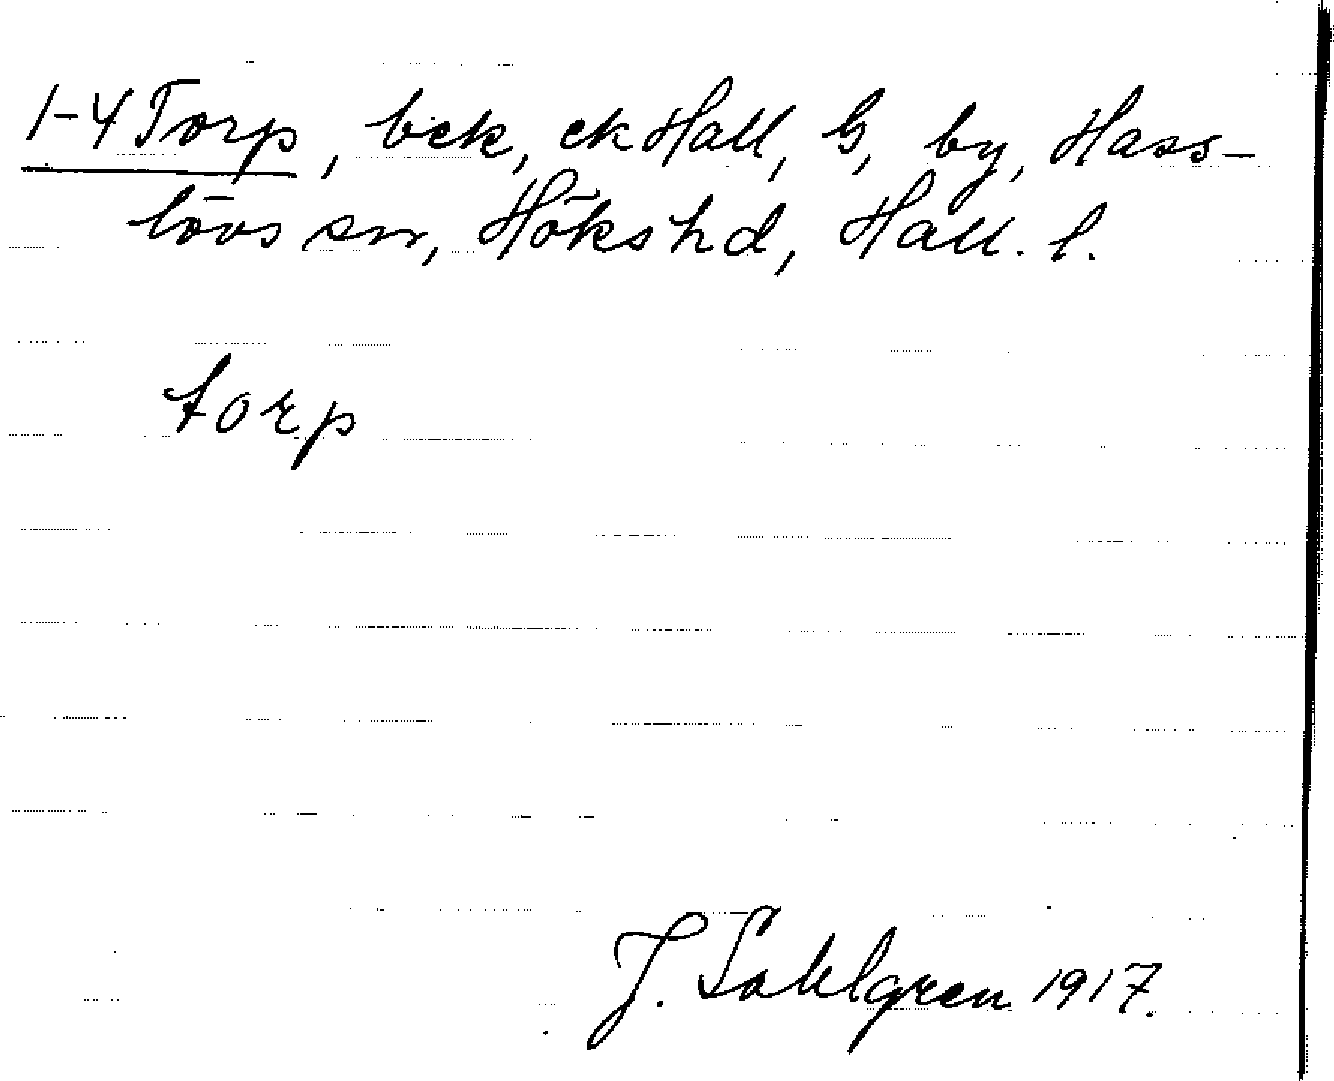 1-4 Torp, bek, ek Hall, G, by, Hass-
lövs sn, Höks hd, Hall. l.
torp
J. Sahlgren 1917.